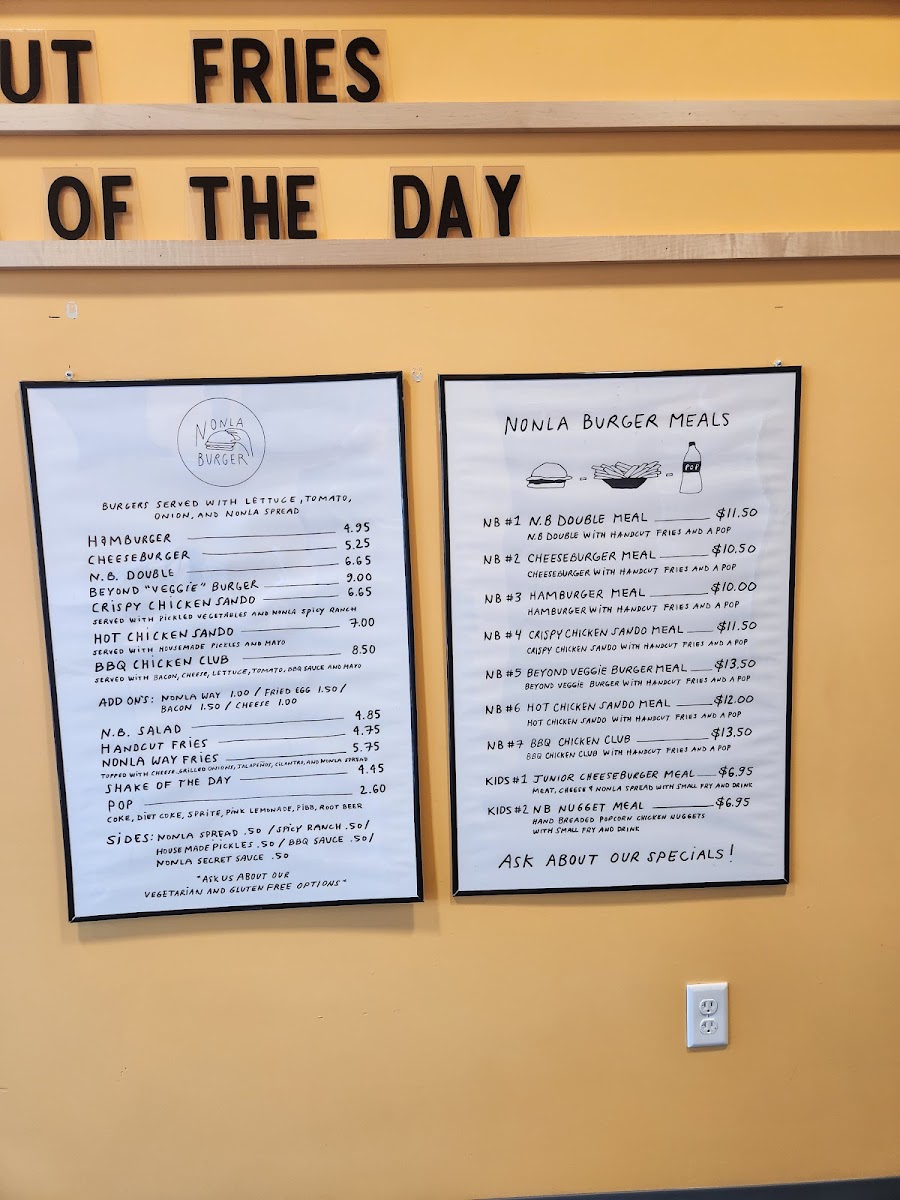 UT FRIES
OF THE DAY
NONLA
BURGER
BURGERS SERVED WITH LETTUCE, TOMATO,
ONION, AND NONLA SPREAD
HAMBURGER 4.95
CHEESEBURGER 5.25
N.B. DOUBLE 6.65
BEYOND "VEGGiE" BURGER 9.00
CRiSPY CHICKEN SANDO 6.65
SERVED WITH PICKLED VEGETABLES AND NONLA SPICY RANCH
HOT CHICKEN SANDO 7.00
SERVED WITH HOUSEMADE PICKLES AND MAYO
BBQ CHICKEN CLUB 8.50
SERVED WITH BACON, CHEESE, LETTUCE, TOMATO, BBQ SAUCE AND MAYO
ADD ONS: NONLA WAY 1.00 / FRIED EGG 1.50/
BACON 1.50 / CHEESE 1.00
N.B. SALAD 4.85
HANDCUT FRIES 4.75
NONLA WAY FRIES 5.75
TOPPED WITH CHEESE, GRILLED ONIONS, JALAPEÑOS, CILANTRO, AND NONLA SPREAD
SHAKE OF THE DAY 4.45
POP 2.60
COKE, DIET COKE, SPRITE, PINK LEMONADE, PIBB, ROOT BEER
SiDES: NONLA SPREAD .50 / SPICY RANCH .50/
HOUSE MADE PICKLES .50 / BBQ SAUCE .50/
NONLA SECRET SAUCE .50
"ASK US ABOUT OUR
VEGETARIAN AND GLUTEN FREE OPTIONS"
NONLA BURGER MEALS
POP
NB #1 N.B DOUBLE MEAL $11.50
N.B DOUBLE WITH HANDCUT FRIES AND A POP
NB #2 CHEESEBURGER MEAL $10.50
CHEESEBURGER WITH HANDCUT FRIES AND A POP
NB #3 HAMBURGER MEAL $10.00
HAMBURGER WITH HANDCUT FRIES AND A POP
NB #4 CRISPY CHICKEN SANDO MEAL $11.50
CRISPY CHICKEN SANDO WITH HANDCUT FRIES AND A POP
NB #5 BEYOND VEGGIE BURGER MEAL $13.50
BEYOND VEGGIE BURGER WITH HANDCUT FRIES AND A POP
NB #6 HOT CHICKEN SANDO MEAL $12.00
HOT CHICKEN SANDO WITH HANDCUT FRIES AND A POP
NB #7 BBQ CHICKEN CLUB $13.50
BBQ CHICKEN CLUB WITH HANDCUT FRIES AND A POP
KIDS #1 JUNIOR CHEESEBURGER MEAL $6.95
MEAT, CHEESE & NONLA SPREAD WITH SMALL FRY AND DRINK
KIDS #2 NB NUGGET MEAL $6.95
HAND BREADED POPCORN CHICKEN NUGGETS
WITH SMALL FRY AND DRINK
ASK ABOUT OUR SPECIALS!